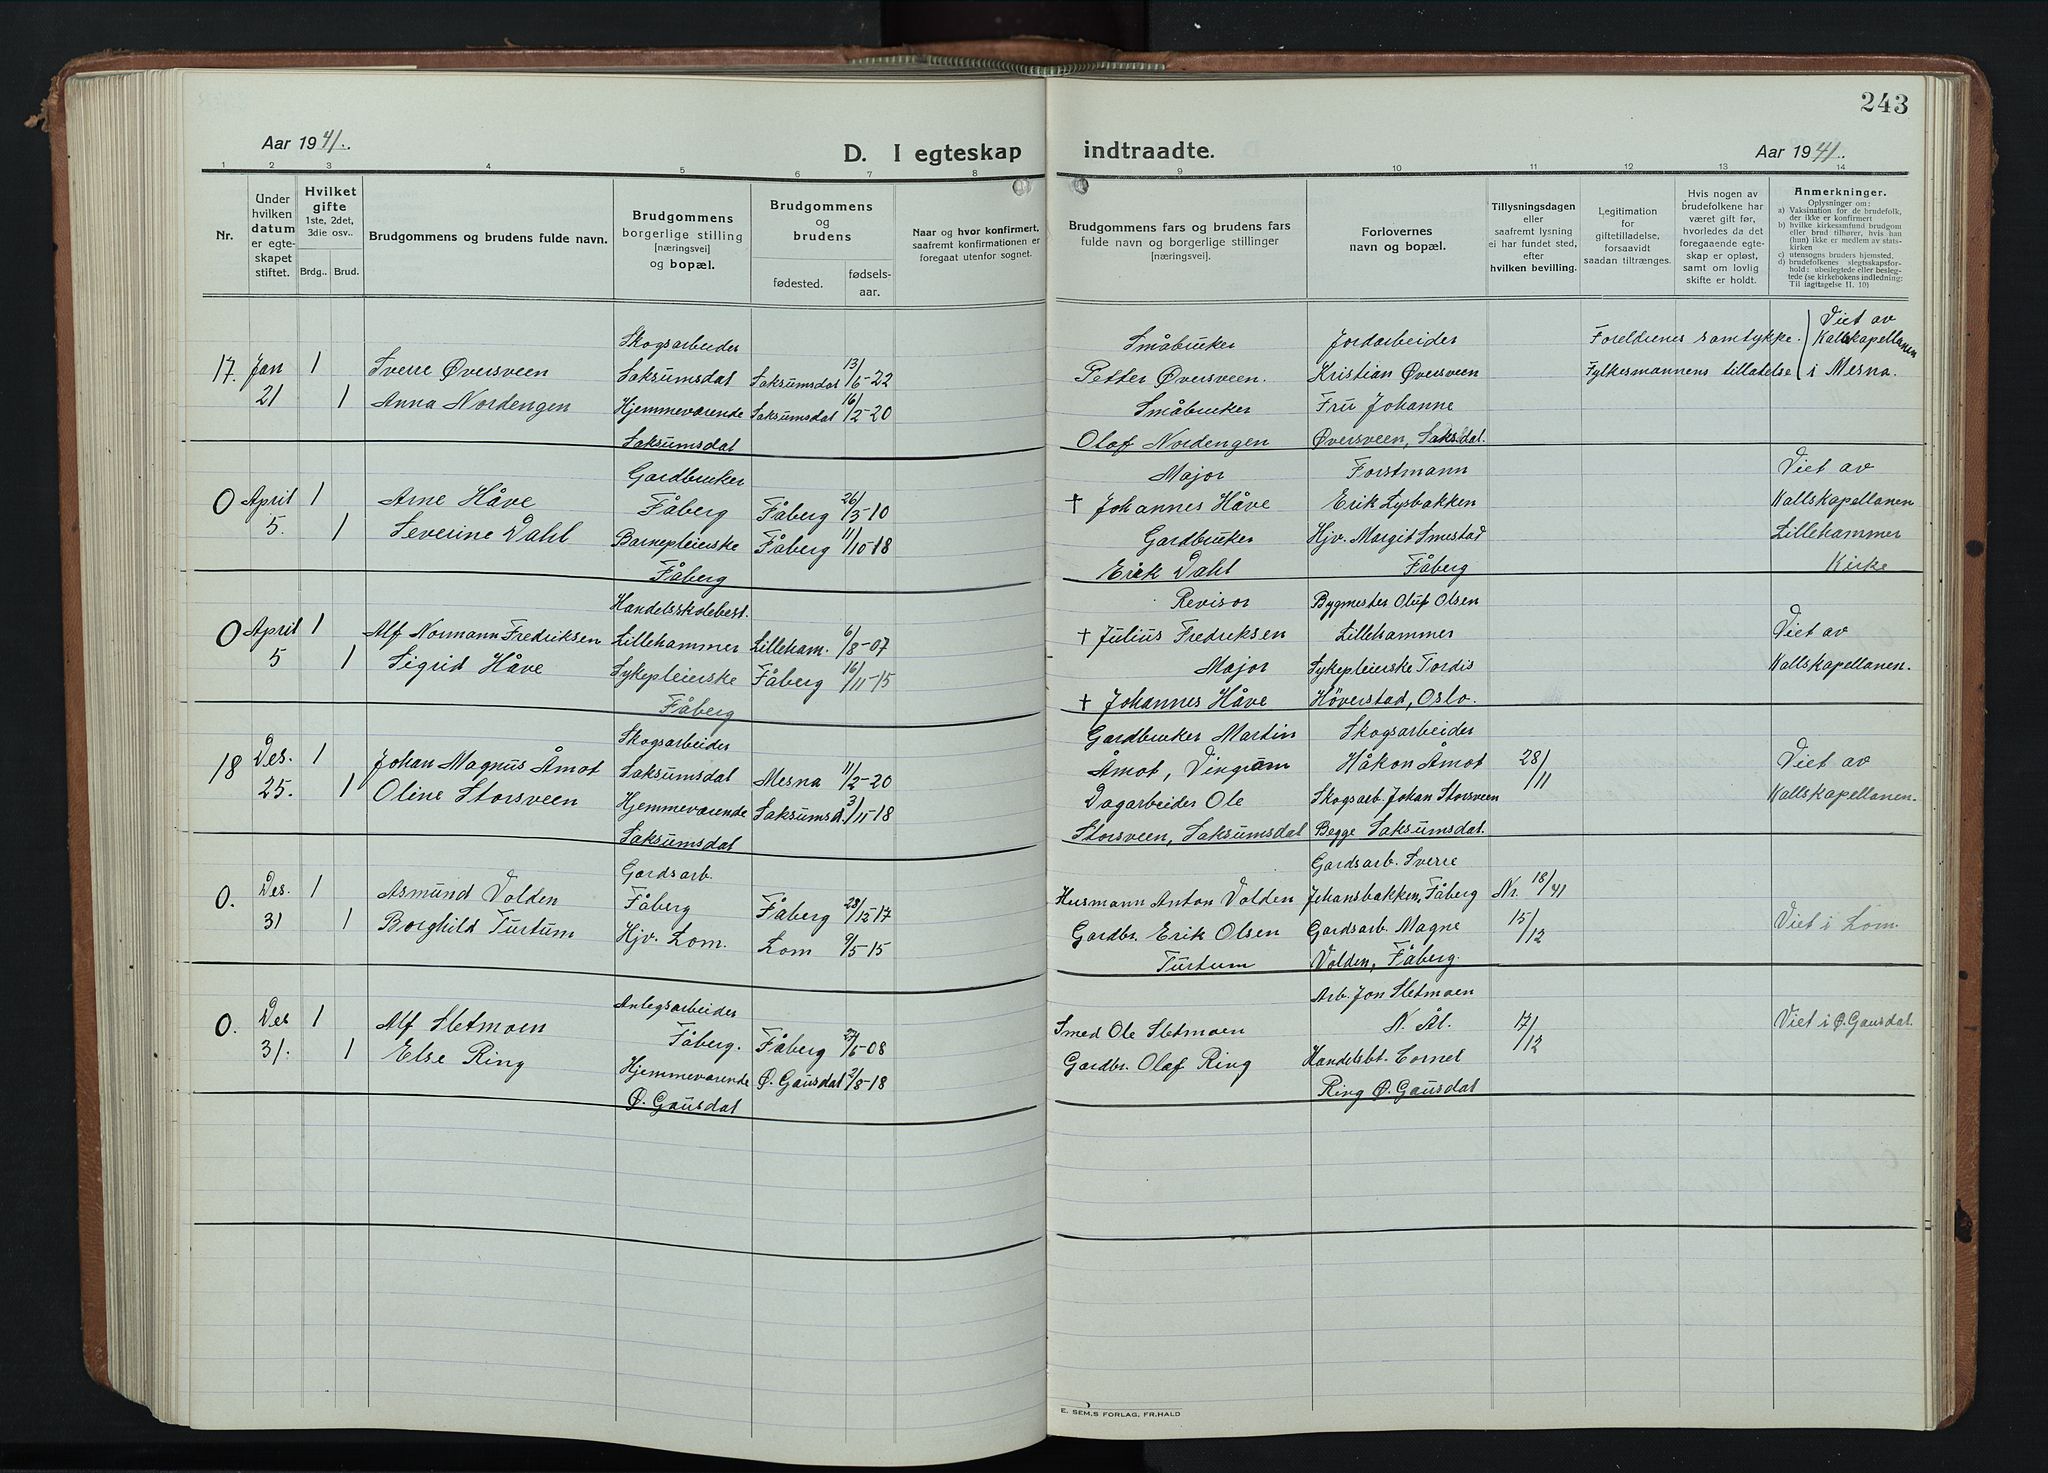 243
Aar 1941.
D. I egteskap
indtraadte.
Aar 1941.
1 2 3 4 5 6 7 8 9 10 11 12 13 14
Nr.
Under hvilken datum er egteskapet stiftet.
Hvilket gifte
1ste, 2det, 3die osv..
Brdg.. Brud.
Brudgommens og brudens fulde navn.
Brudgommens borgerlige stilling [næringsvei] og bopæl.
Brudgommens og brudens
fødested.
fødsels-aar.
Naar og hvor konfirmert, saafremt konfirmationen er foregaat utenfor sognet.
Brudgommens fars og brudens fars fulde navn og borgerlige stillinger [næringsvei].
Forlovernes navn og bopæl.
Tillysningsdagen eller saafremt lysning ei har fundet sted, efter hvilken bevilling.
Legitimation for giftetilladelse, forsaavidt saadan tiltrænges.
Hvis nogen av brudefolkene har været gift før, hvorledes da det foregaaende egteskap er opløst, samt om lovlig skifte er holdt.
Anmerkninger.
Oplysninger om:
a) Vaksination for de brudefolk, der ikke er konfirmert
b) hvilke kirkesamfund brudgom eller brud tilhører, hvis han (hun) ikke er medlem av statskirken
c) utensogns bruders hjemsted.
d) brudefolkenes slegtsskapsforhold: ubeslegtede eller beslegtede (se kirkebokens indledning: Til iagttagelse II. 10)
Skogsarbeider
Småbruker
Jordarbeider
Foreldrenes samtykke.
Viet av
Kallskapellanen
17. Jan 1 Sverre Øversveen Saksumsdal Saksumsdal 13/6-22 Petter Øversveen. Kristian Øversveen Fylkesmannens tilladelse i Mesna.
21 1 Anna Nordengen Hjemmeværende Saksumsdal 16/2-20 Småbruker Fru Johanne
Saksumsdal Olaf Nordengen Øversveen, Saksdal.
Gardbruker Major Forstmann Viet av
0 April 1 Arne Håve Fåberg Fåberg 26/3-10 † Johannes Håve Erik Lysbakken Kallskapellanen
5. 1 Severine Dahl Barnepleierske Fåberg 11/10-18 Gardbruker Hjv. Margit Smestad Lillehammer
Fåberg Erik Dahl Fåberg Kirke
Handelsskolebest. Revisor Bygmester Oluf Olsen
0 April 1 Alf Normann Fredriksen Lillehammer Lilleham. 6/8-07 † Julius Fredriksen Lillehammer Viet av
5 1 Sigrid Håve Sykepleierske Fåberg 16/11-15 Major Sykepleierske Tordis Kallskapellanen.
Fåberg † Johannes Håve Höverstad, Oslo.
Skogsarbeider Gardbruker Martin Skogsarbeider
18 Des. 1 Johan Magnus Åmot Saksumsdal Mesna 11/2-20 Åmot, Vingrom Håkon Åmot 28/11 Viet av
25. 1 Oline Storsveen Hjemmeværende Saksumsd. 3/11-18 Dagarbeider Ole Skogsarb. Johan Storsveen Kallskapellanen.
Saksumsdal Storsveen, Saksumsdal Begge Saksumsdal.
Gardsarb. Gardsarb. Sverre
0. Des. 1 Asmund Volden Fåberg Fåberg 28/12-17 Husmann Anton Volden Johansbakken, Fåberg Nr. 18/41
31 1 Borghild Turtum Hjv. Lom. Lom 9/5-15 Gardbr. Erik Olsen Gardsarb. Magne 15/12 Viet i Lom.
Turtum Volden, Fåberg.
Anlegsarbeider Arb. Jon Sletmoen
0. Des 1 Alf Sletmoen Fåberg. Fåberg 27/5-08 Smed Ole Sletmoen N. Ål. 17/12 Viet i Ø. Gausdal.
31. 1 Else Ring Hjemmeværende Ø. Gausdal 2/8-18 Gardbr. Olaf Ring Handelsbt. Cornel
Ø. Gausdal Ring Ø. Gausdal
E. SEM,S FORLAG, FR.HALD